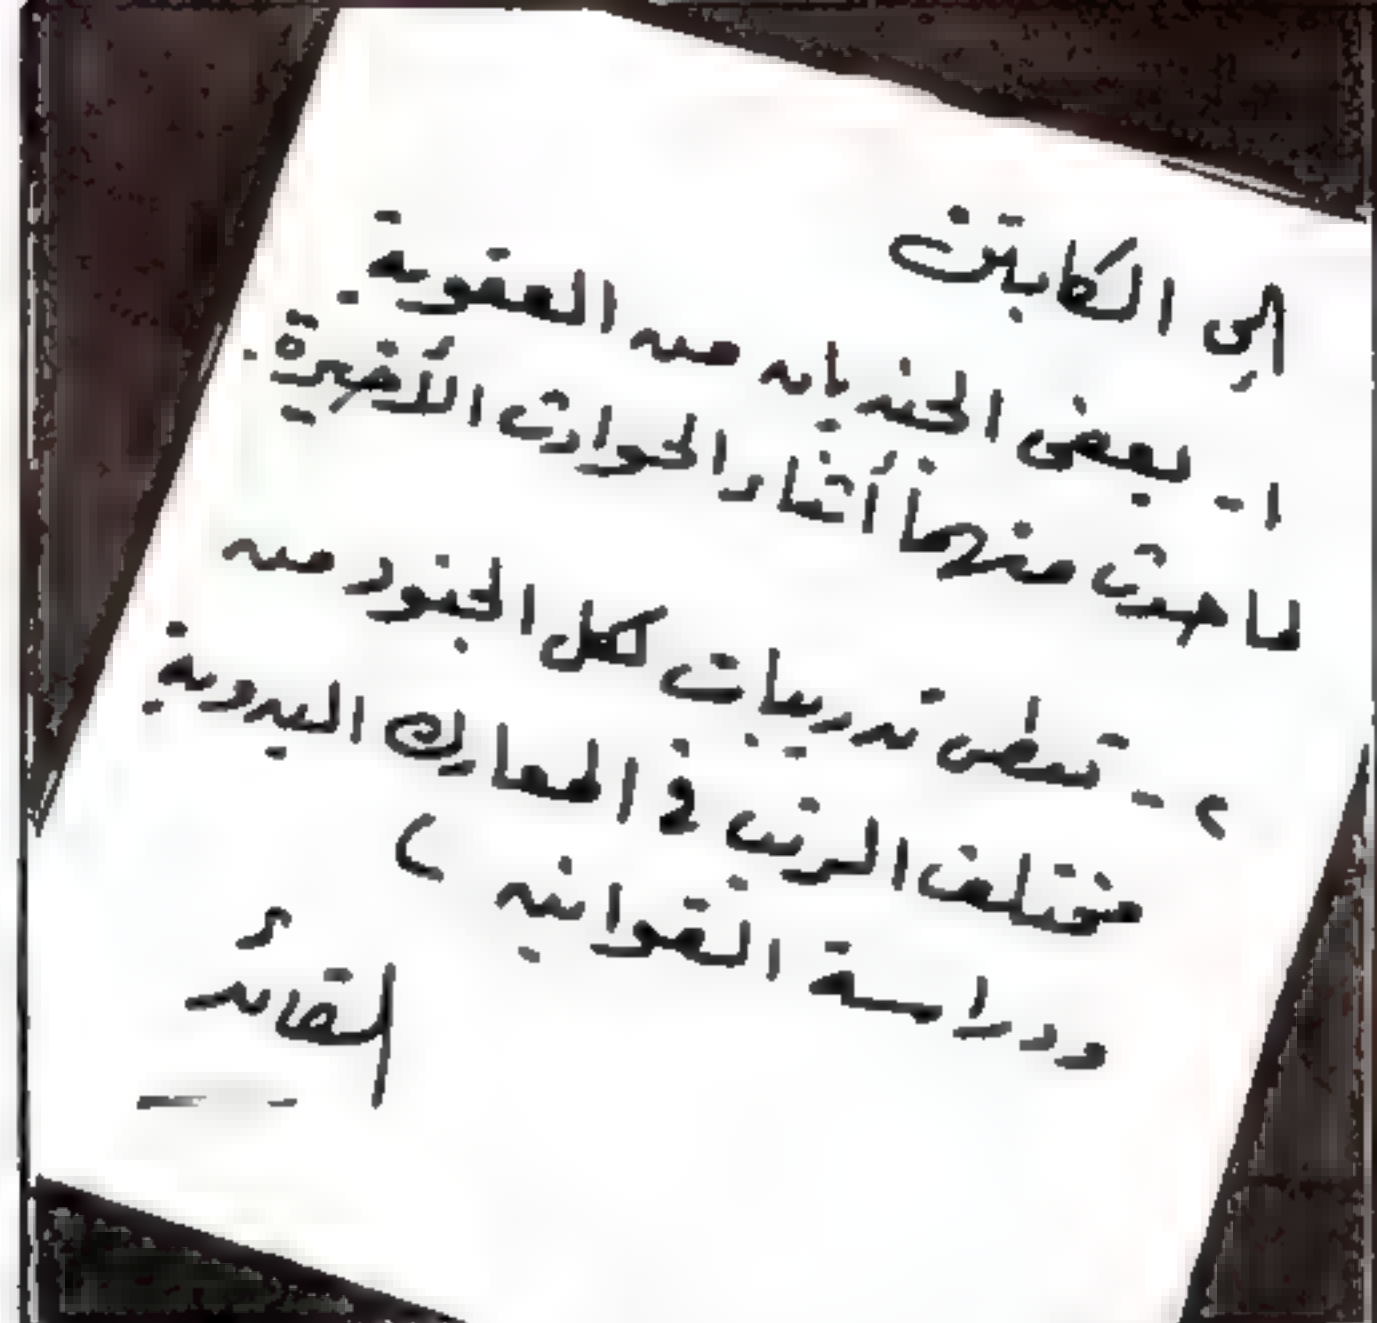 إلى الكابتن
١- يعفى الجنديان من العقوبة.
لما حدث منهما أثناء الحوادث الأخيرة.
٢- تعطى تدريبات لكل الجنود من
مختلف الرتب في المعارك اليدوية
ودراسة القوانين
القائد